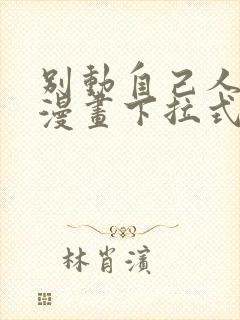 別動自己人
漫畫下拉式
林肖濱